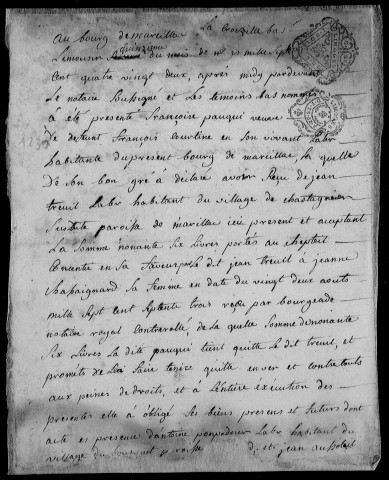 au bourg de mareillac La Croizille bas
Limousin quinzieme du mois de mars mille sept
Cent quatre vingt deux, après midy pardevant
Le notaire Soussigné et Les temoins bas nommés
à eté presente Françoise pauqui veuve
De deffunt François Courtine en Son vivant Labr
habitante du present bourg de mareillac la quelle
de Son bon gré à declaré avoir Reçu de jean
treuil Labr habitant du village de chastagner
Susdite paroisse de mareillac icy present et acceptant
La Somme nonante Six Livres portés au cheptail
Consentie en Sa faveur par Le dit jean treuil à jeanne
chapaignard Sa femme en date du vingt deux aouts
mille Sept cent Septente trois reçu par bourgeade
notaire royal Contrerollé, de la quelle Somme de nonante
Six Livres La dite pauqui tient quitte Le dit treuil, et
promets de Le faire tenire quitte enver et contre touts
aux peines de droits, et à L'entiere execution des
presentes elle à obligé Ses biens presens et futurs dont
acte es presence d'antoine pompadour Labr habitant du
village du bousquet p roisse d. st jean